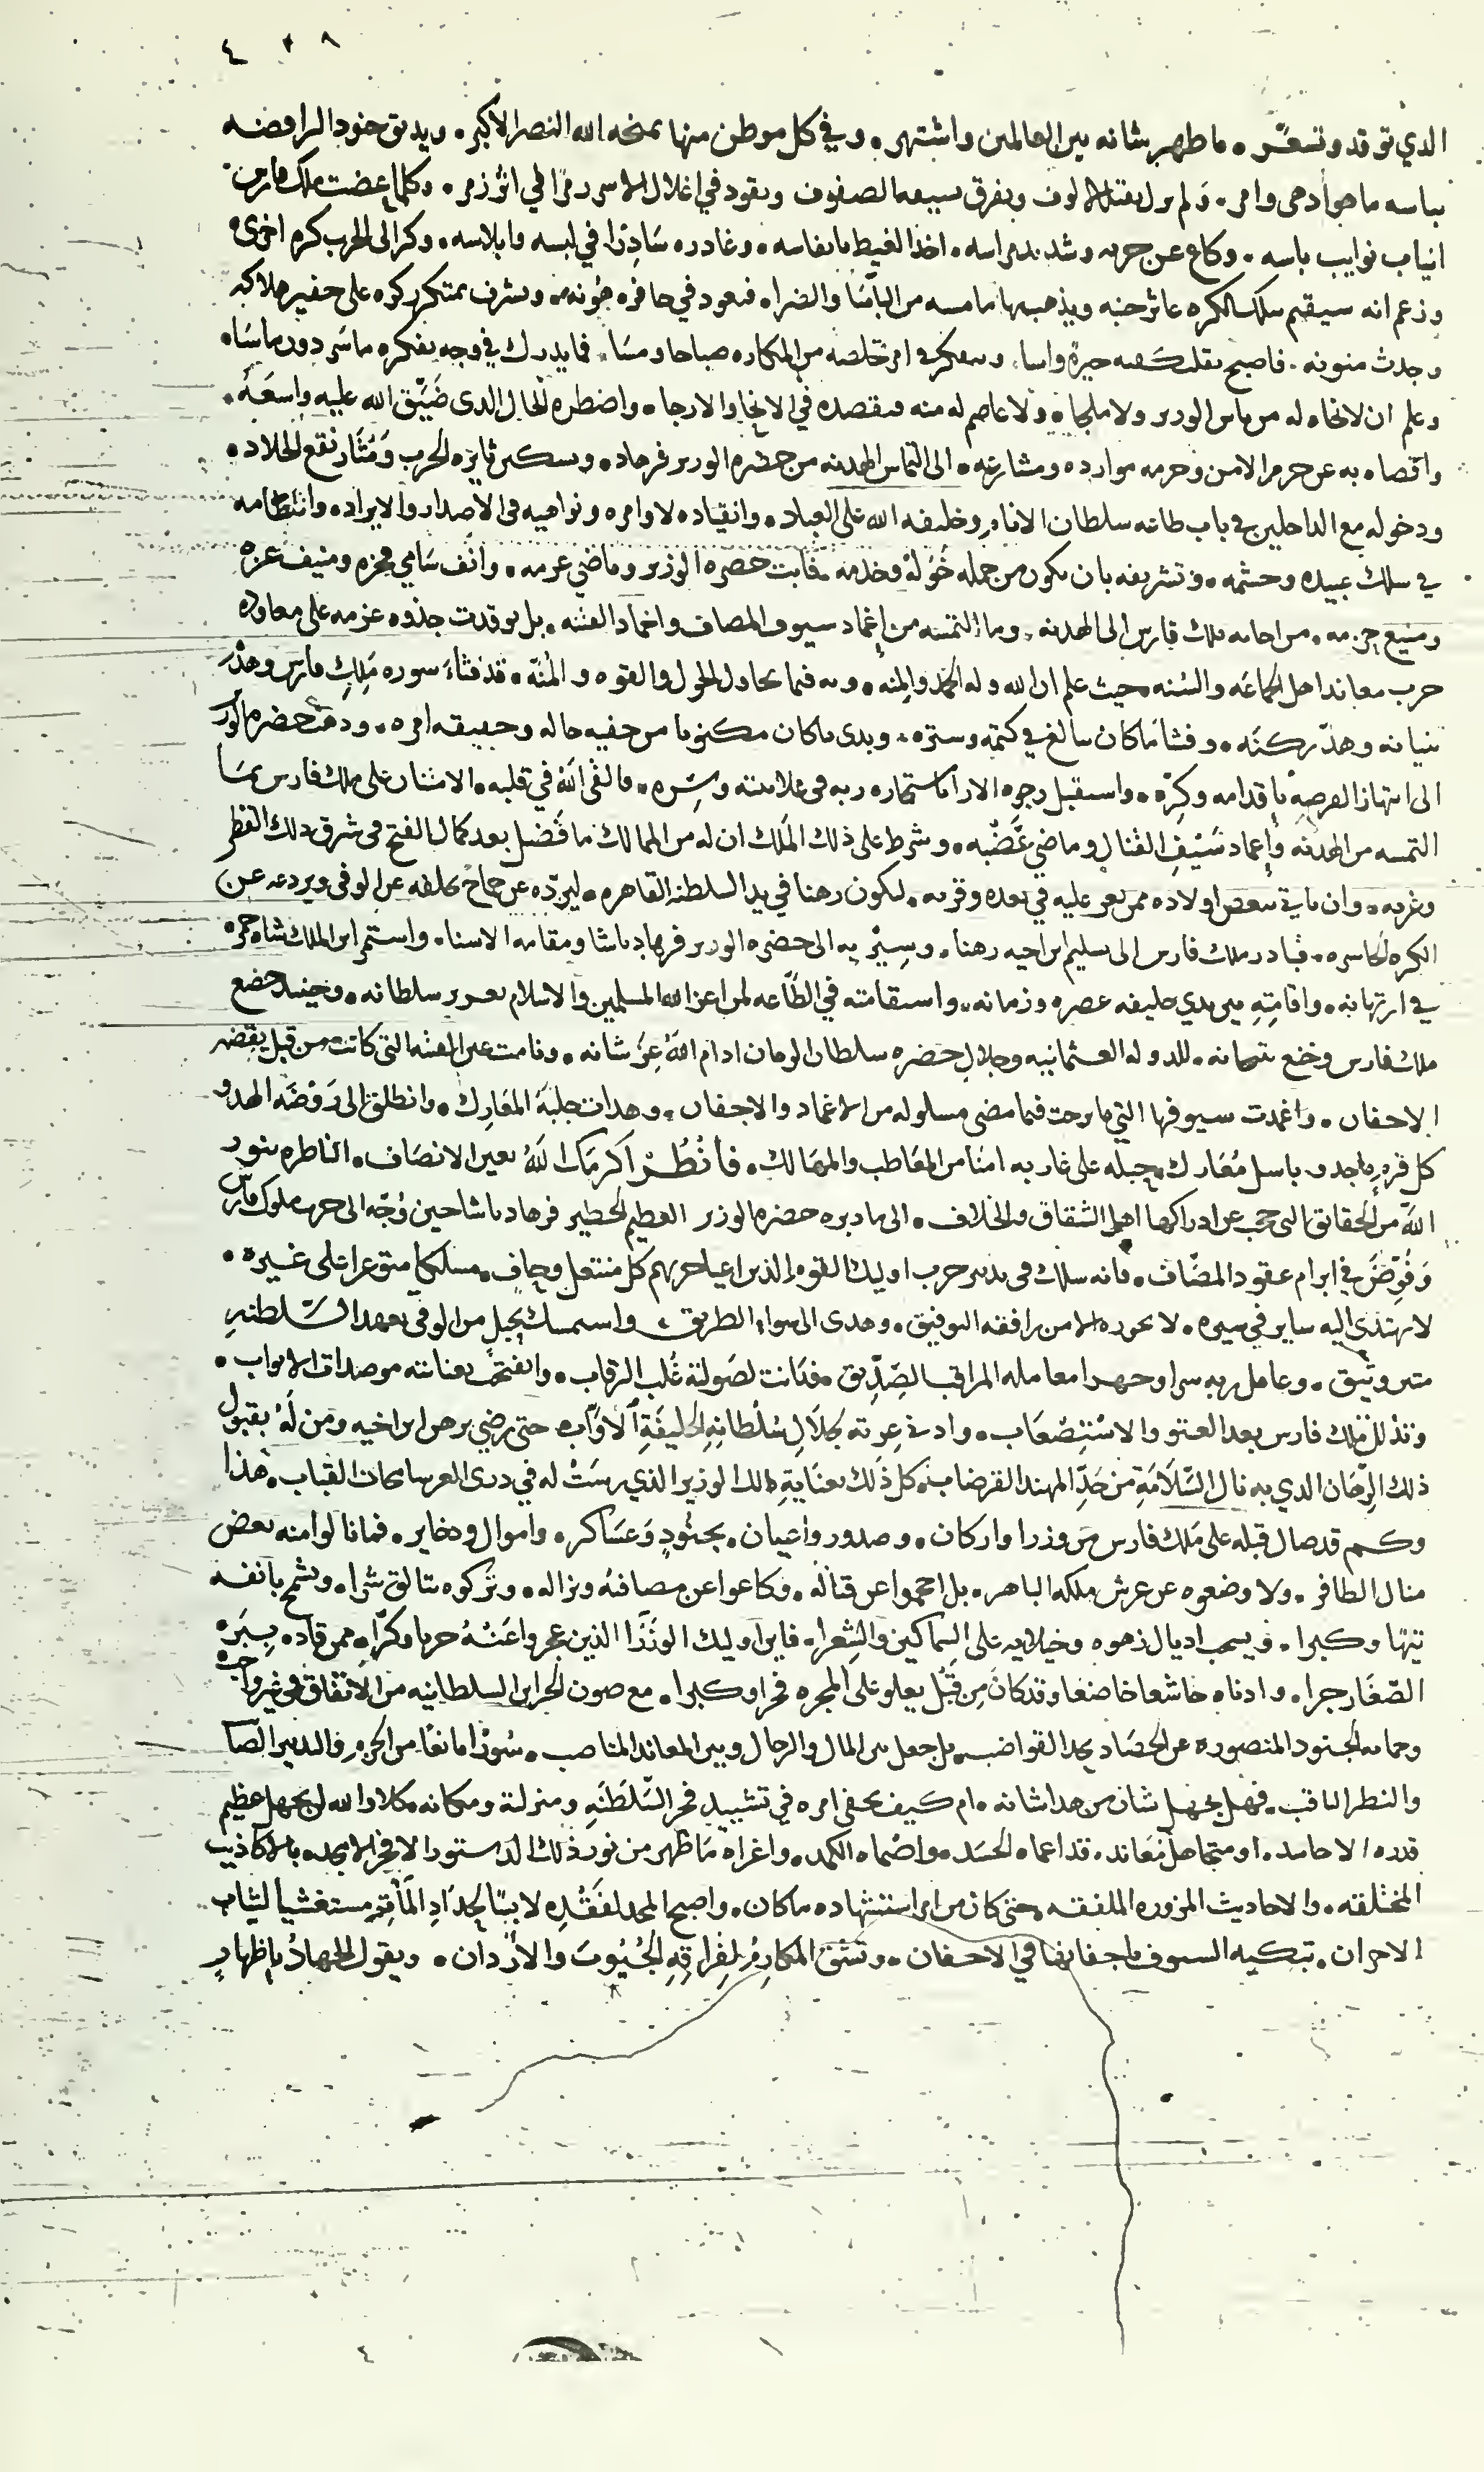 ٤٠٨
الذي توقد وتسعر • ما ظهر شانه بين العالمين واشتهر • وفي كل موطن منها يمنحه الله النصر الاكبر • ويذيق جنود الرافضه
بباسه ما هو أدهى وامر • ولم يزل يقتل الالوف ويفرق بسيفه الصفوف ويقود في اغلال الاسر زمرا الي اثر زمر • وكلما عضت ملك فارس
انياب نوايب باسه • وكاع عن حربه وشديد مراسه • اخذ الغيظ بانفاسه • وغادره سادرا في لبسه وابلاسه • وكر الى الحرب كره اخرى •
وزعم انه سيقيم بتلك الكره عاثر جنبه ويذهب بها ما مسه من البأسا والضراء فيعود في حافره
وجدث منونه • فاصبح يقلب كفيه حيرة واسا • ويتفكر في امر تخلصه من المكاره صباحا ومسا • فما يدرك في وجه تفكره ما سر دون ما ساه
وعلم ان لا نجاه له من باس الوزير ولا ملجا • ولا عاصم له منه فيقصده في الانحا والارجا • واضطره الحال الذي ضيّق الله عليه واسعه •
واقصاه به عن حرم الامن وحرمه موارده ومشارعه • الى التماس الهدنه من حضره الوزير فرهاد • وتسكين نايره الحرب ومثار نقع الجلاد •
ودخوله مع الداخلين في باب طاعه سلطان الانام وخليفه الله على العباد • وانقياده لاوامره ونواهيه في الاصدار والايراد • وانتظامه
في سلك عبيده وحشمه • وتشريفه بان يكون من جمله خوله وخدمه • فأبت حضره الوزير وماضي عزمه • وانف سامي فخره ومنيف عزه
ومنيع حزمه • من اجابه ملك فارس الى الهدنه • وما التمسه من إغماد سيوف المصاف واخماد الفتنه • بل توقدت جذوه عزمه على معاوده
حرب معاند اهل الجماعه والسنه • حيث علم ان الله وله الحمد والمنه • وبه فيما يحاول الحول والقوه والمنّة • قد فثاء سوره ملك فارس وهدّ
بنيانه وهدّ ركنه • وفشا ما كان يبالغ في كتمه وستره • وبدى ما كان مكنونا من خفيه حاله وحقيقه امره • ودهت حضره الوزير
الى انتهاز الفرصه باقدامه وكرّه • واستقبل وجوه الارا باستخاره ربه في علانيته وسره • فالقى الله في قلبه • الامتنان على ملك فارس بما
التمسه من الهدنه وإغماد سيف القتال وماضي غضبه • وشرط على ذلك الملك ان له من الممالك ما فضل بعد كمال الفتح في شرق ذلك القطر
وغربه • وان ياتي ببعض اولاده ممن يعز عليه في بعده وقربه • ليكون رهنا في يد السلطنه القاهره • ليردّه عن جماح تخلفه عن الوفى ويردعه عن
الكره الخاسره • فبادر ملك فارس الى تسليم ابن اخيه رهنا • وسير به الى حضره الوزير فرهاد باشا ومقامه الاسنا • واستمر ابن الملك شاه حمزه
في ارتهانه • واقامته بين يدي خليفه عصره وزمانه • واستقامته في الطاعه لمن اعز الله المسلمين والاسلام بعزيز سلطانه • وحينئذ خضع
ملك فارس وخنع بتيجانه • للدوله العثمانيه وجلال حضره سلطان الزمان ادام الله عزّ شانه • ونامت عين الفتنه التي كانت من قبل يقظه
الاجفان • واغمدت سيوفها التي ما برحت فيما مضى مسلوله من الاغماد والاجفان • وهدات جلبه المعارك • وانطلق الى روضه الهدو
كل قرم ماجد وباسل مُعَارك • حبله على غاربه امنا من المعاطب والمهالك • فأنظر أكرمك الله بعين الانصاف • الناظره بنور
الله من الحقائق التي حجب عن ادراكها اهل الشقاق والخلاف • الى ما دبره حضره الوزير العظيم الخطير فرهاد باشا حين وُجّه الى حرب ملوك فارس
وفُوّض في ابرام عقود المصاف • فانه سلك في تدبير حرب اوليك القوم الذين اعيا حربهم كل منتعل وحاف • مسلكا متوعرا على غيره •
لا يهتدى اليه ساير في سيره • لا يجوزه الا من رافقه التوفيق • وهدى الى سواء الطريق • واستمسك بحبل من الوفى بعهد السّلطنه
متين وثيق • وعامل ربه سرا وجهرا معامله المراقب الصّدّيق • فدانت لصولته غُلب الرقاب • وانفتحت بعنايته موصدات الابواب •
وتذلل ملك فارس بعد العتو والاستصعاب • واد في عزته بجلال سلطانه الخليفة الاوّاب حتى رضي برهن ابن اخيه ومن له بقبول
ذلك الرِّهان الذي به نال السّلامه من حدّ المهند القرضاب • كل ذلك بعناية ذلك الوزير الذي رست له في درى العز سامخات القباب • هذا
وكم قد صال قبله على ملك فارس من وزرا واركان • وصدور واعيان • بجنود وعساكر • واموال وذخاير • فما نالوا منه بعض
منال الظافر • ولا وضعوه عن عرش ملكه الباهر • بل احجموا عن قتاله • وكاعوا عن مصافته ونزاله • وتركوه يتالق شرا • ويشمخ بانفه
تيها وكبرا • ويسحب اذيال زهوه وخيلايه على السماكين والشعرا • فاين اوليك الوزرا الذين عجزوا عنه حربا وكرّا • ممن قاده ببره
الصّغار جرا • وادناه خاشعا خاضعا وقد كان من قبل يعلو على المجره فخرا وكبرا • مع صون الخزاين السلطانيه من الانفاق في غير واجب
وحمايه الجنود المنصوره عن الحصاد بحد القواضب • بل جعل بين المال والرجال وبين المعاند المناصب • سُورًا مانعًا من الحزم والتدبير الصايب
والنظر الثاقب • فهل يجهل شان من هذا شانه • ام كيف يخفى امره في تشييد فخر السّلطنه ومنزلته ومكانه • كلا والله لن يجهل عظيم
قدره الا حاسد • او متجاهل مُعاند • قد اعماه الحسد • واصماه الكمد • واغراه ما ظهر من نور ذلك الدستور الافخر الامجد • بالاكاذيب
المختلقه • والاحاديث المزوره الملفقه • حتى كان من امر استشهاده ما كان • واصبح المجد لفقده لابسًا لحداد المآتم مستغشيا لثياب
الاحزان • تبكيه السيوف باجفانها في الاجفان • وتشق المكارم لفراقه الجيوب والأردان • ويقول الجهاد باظهار